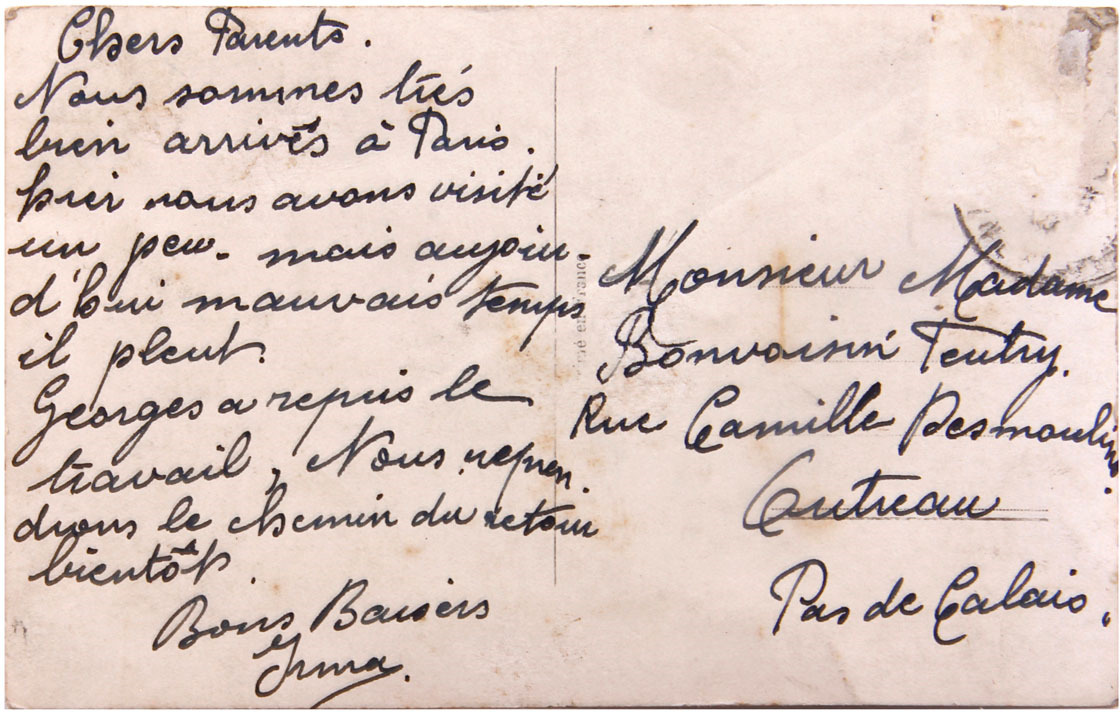 Chers Parents.
Nous sommes très
bien arrivés à Paris.
hier nous avons visité
un peu. mais aujour-
d'hui mauvais temps
il pleut.
Georges a repris le
travail, Nous repren-
drons le chemin du retour
bientôt
Bons Baisers
Irma.
Monsieur Madame
Bonvoisin Teutry.
Rue Camille Desmoulins.
Outreau
Pas de Calais.